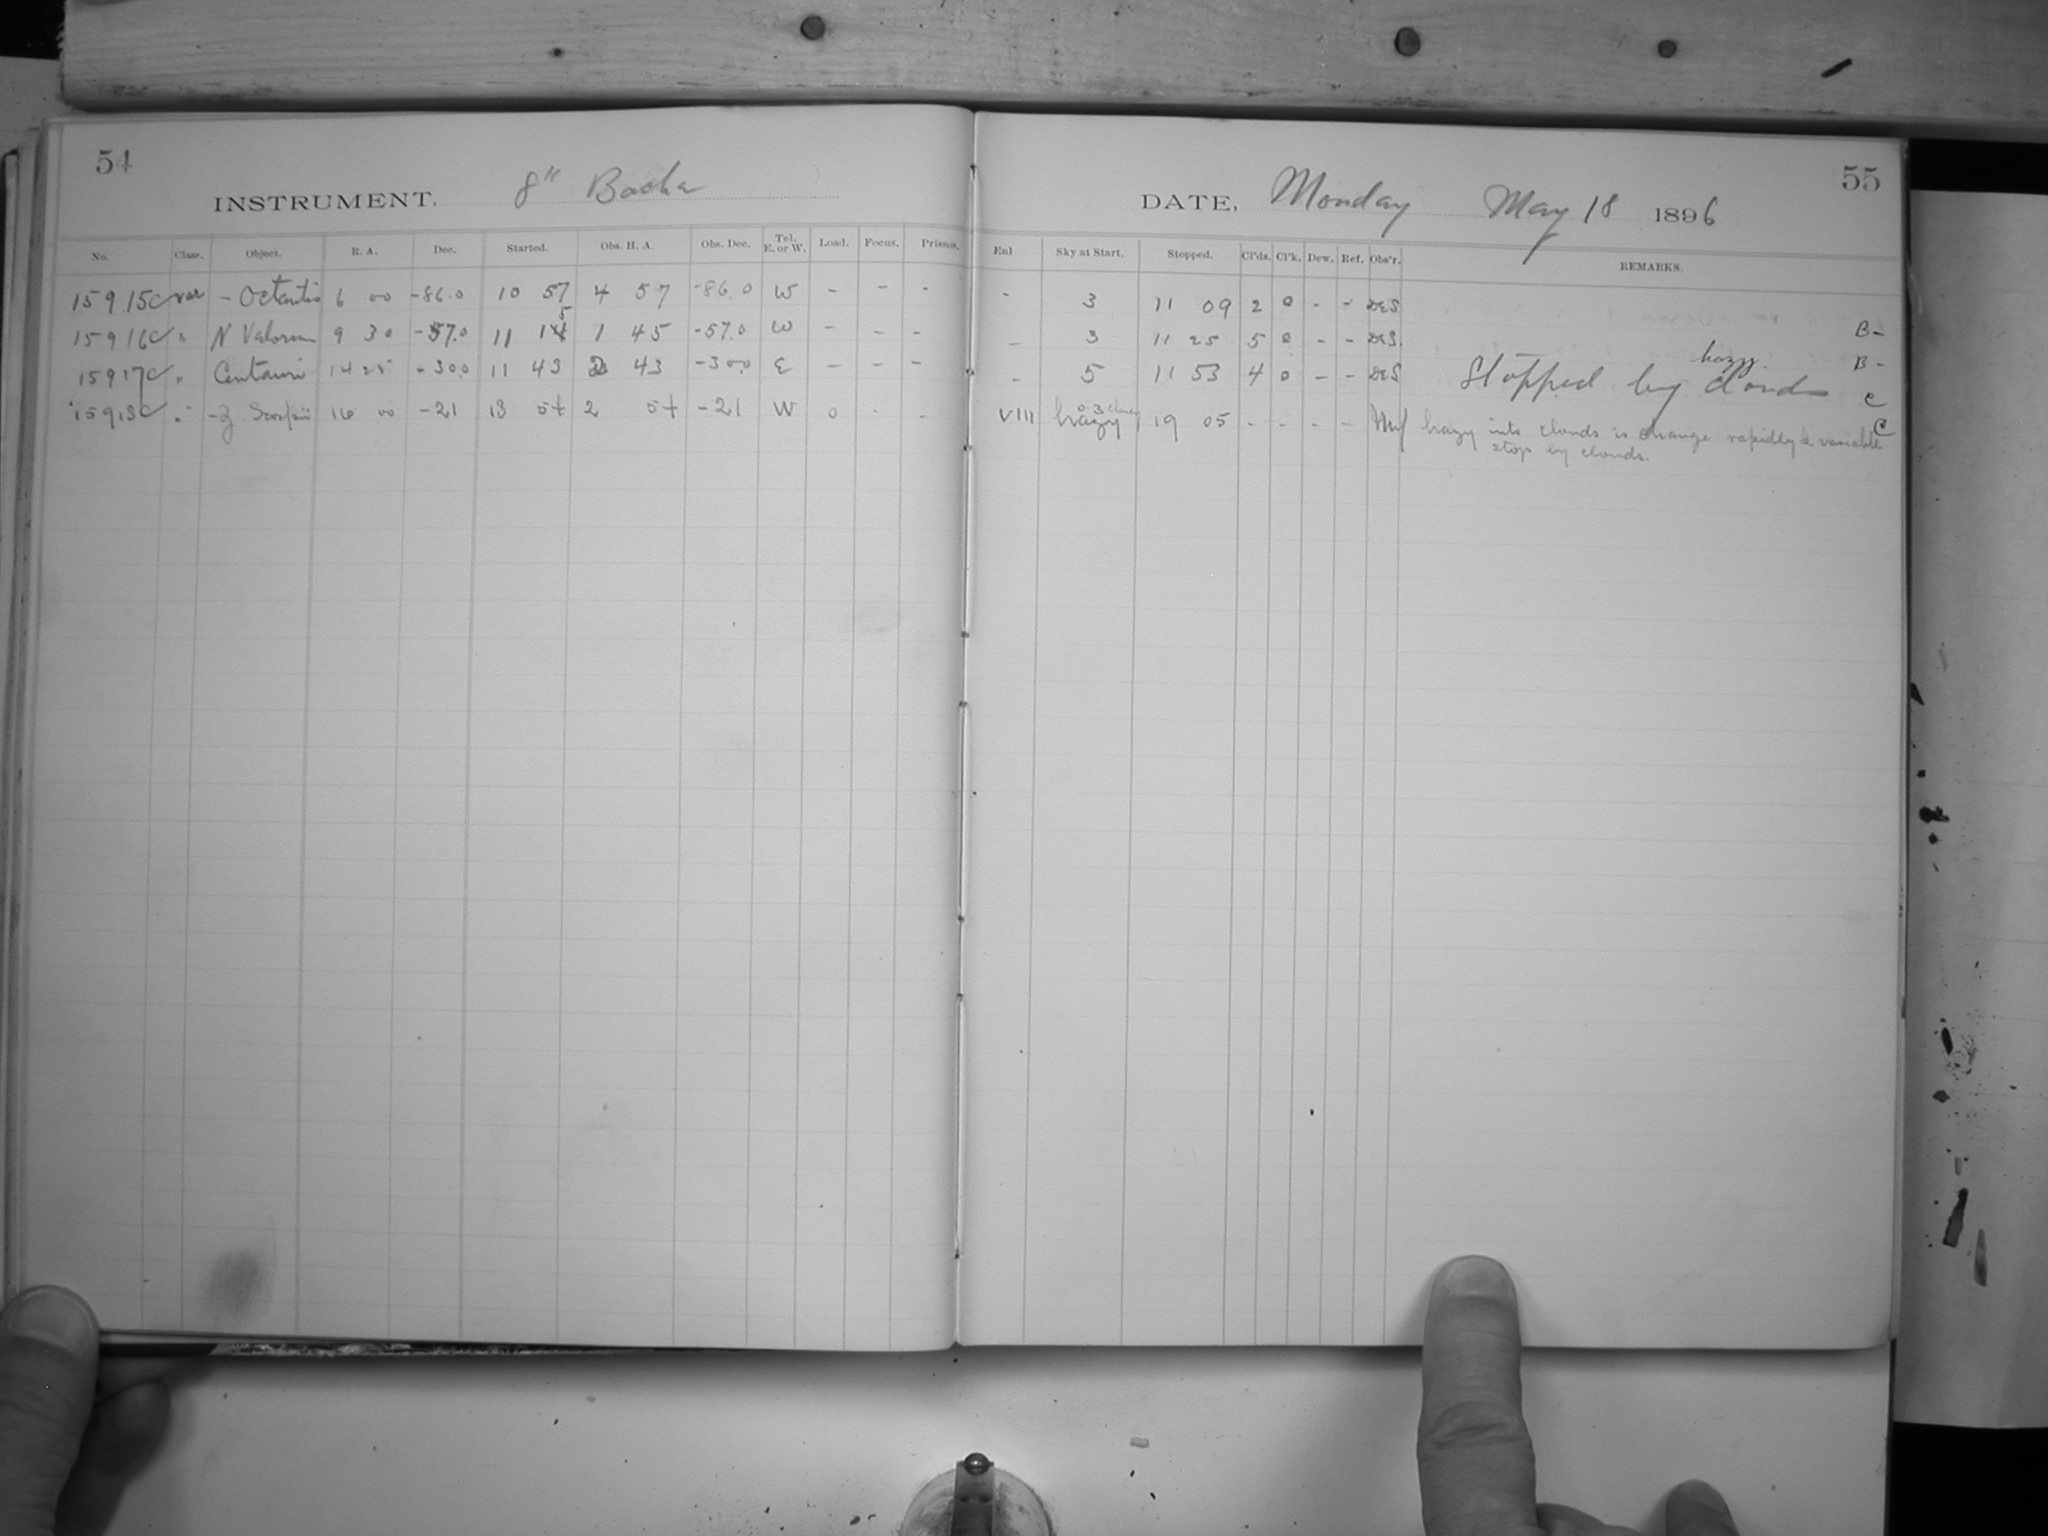 54
INSTRUMENT. 8" Bache
No. Class. Object. R. A. Dec. Started. Obs. H. A. Obs. Dec. Tel. E. or W. Load. Focus. Prisms.
15915C var - Octantis 6 00 -86.0 10 57 4 57 -86.0 W - - -
15916C " N Velorum 9 30 -57.0 11 15 1 45 -57.0 W - - -
15917C " Centauri 14 25 -30.0 11 43 2 43 -30.0 E - - -
15918C " - Scorpii 16 00 -21 18 54 2 54 -21 W 0 - -
DATE, Monday May 18 1896
55
Enl Sky at Start. Stopped. Cl'ds. Cl'k. Dew. Ref. Obs'r. REMARKS.
- 3 11 09 2 0 - - DeS B-
- 3 11 25 5 0 - - DeS. B-
- 5 11 53 4 0 - - DeS Stopped by hazy clouds C
VIII hazy 19 05 - - - - hazy into clouds is change rapidly & variable C
stop by clouds.